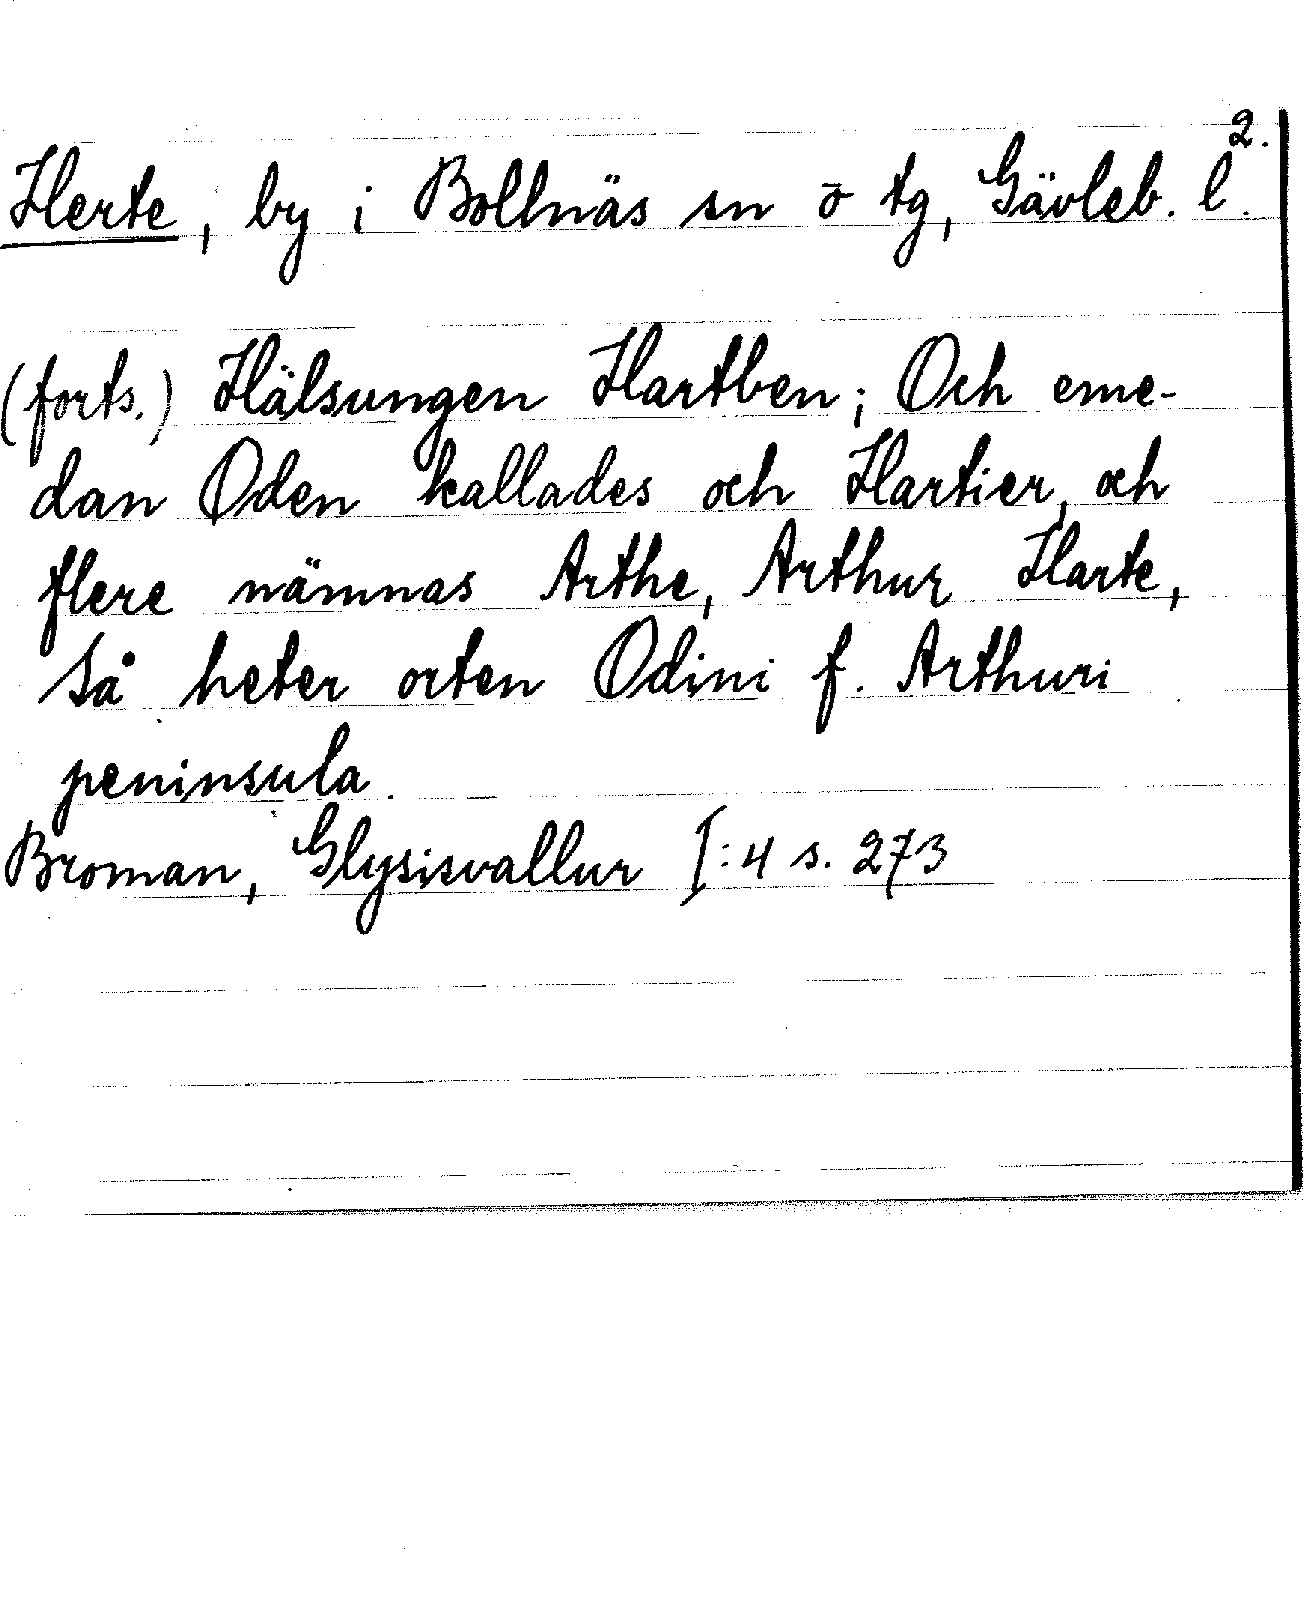 2.
Herte, by i Bollnäs sn o tg, Gävleb. l.
(forts.) Hälsungen Hartben; Och eme-
dan Oden kallades och Hartier, och
flere nämnas Arthe, Arthur Harte,
Så heter orten Odini f. Arthuri
peninsula.
Broman, Glysisvallur I:4 s. 273